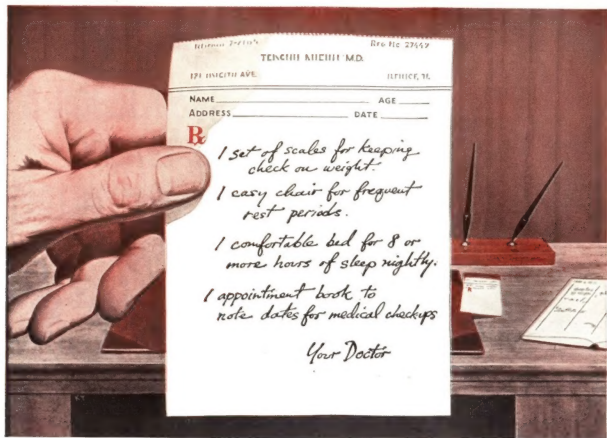 Reg No. 27449
M.D.
AVE.
NAME AGE
ADDRESS DATE
℞
1 set of scales for keeping
check on weight.
1 easy chair for frequent
rest periods.
1 comfortable bed for 8 or
more hours of sleep nightly.
1 appointment book to
note dates for medical checkups
Your Doctor